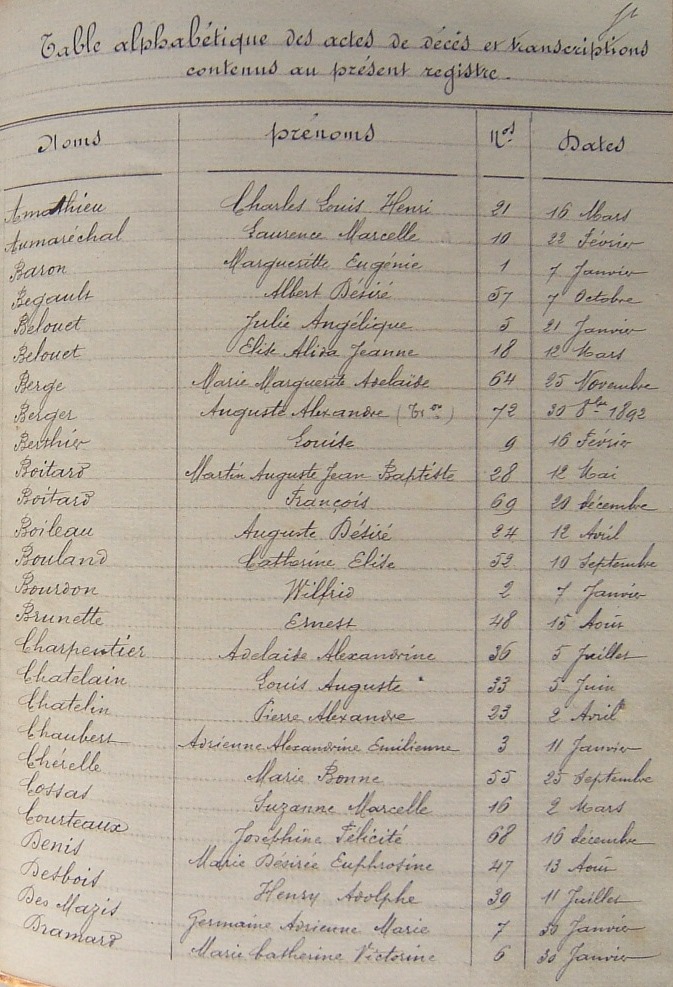 Table alphabétique des actes de décés et transcriptions
contenus au présent registre.
Noms prénoms Nos Dates
Amathieu Charles Louis Henri 21 16 Mars
Aumaréchal Laurence Marcelle 10 22 Février
Baron Marguesitte Eugénie 1 7 Janvier
Begault Albert Désiré 57 7 Octobre
Belouet Julie Angélique 5 21 Janvier
Belouet Elise Aliza Jeanne 18 12 Mars
Berge Marie Marguerite Adelaïde 64 25 Novembre
Berger Auguste Alexandre (Tr on) 72 30 8bre 1892
Berthier Louise 9 16 Février
Boitard Martin Auguste Jean Baptiste 28 12 Mai
Boitard François 69 29 décembre
Boileau Auguste Désiré 24 12 Avril
Bouland Catherine Elise 52 10 Septembre
Bourdon Wilfrid 2 7 Janvier
Brunette Ernest 48 15 Août
Charpentier Adelaide Alexandrine 36 5 Juillet
Chatelain Louis Auguste 33 5 Juin
Chatelin Pierre Alexandre 23 2 Avril
Chaubert Adrienne Alexandrine Emilienne 3 11 Janvier
Chérelle Marie Bonne 55 25 Septembre
Cossas Suzanne Marcelle 16 2 Mars
Courteaux Joséphine Félicité 68 16 décembre
Denis Marie Désirée Euphrosine 47 13 Août
Desbois Henry Adolphe 39 11 Juillet
Des Mazis Germaine Adrienne Marie 7 30 Janvier
Dramard Marie Catherine Victorine 6 30 Janvier